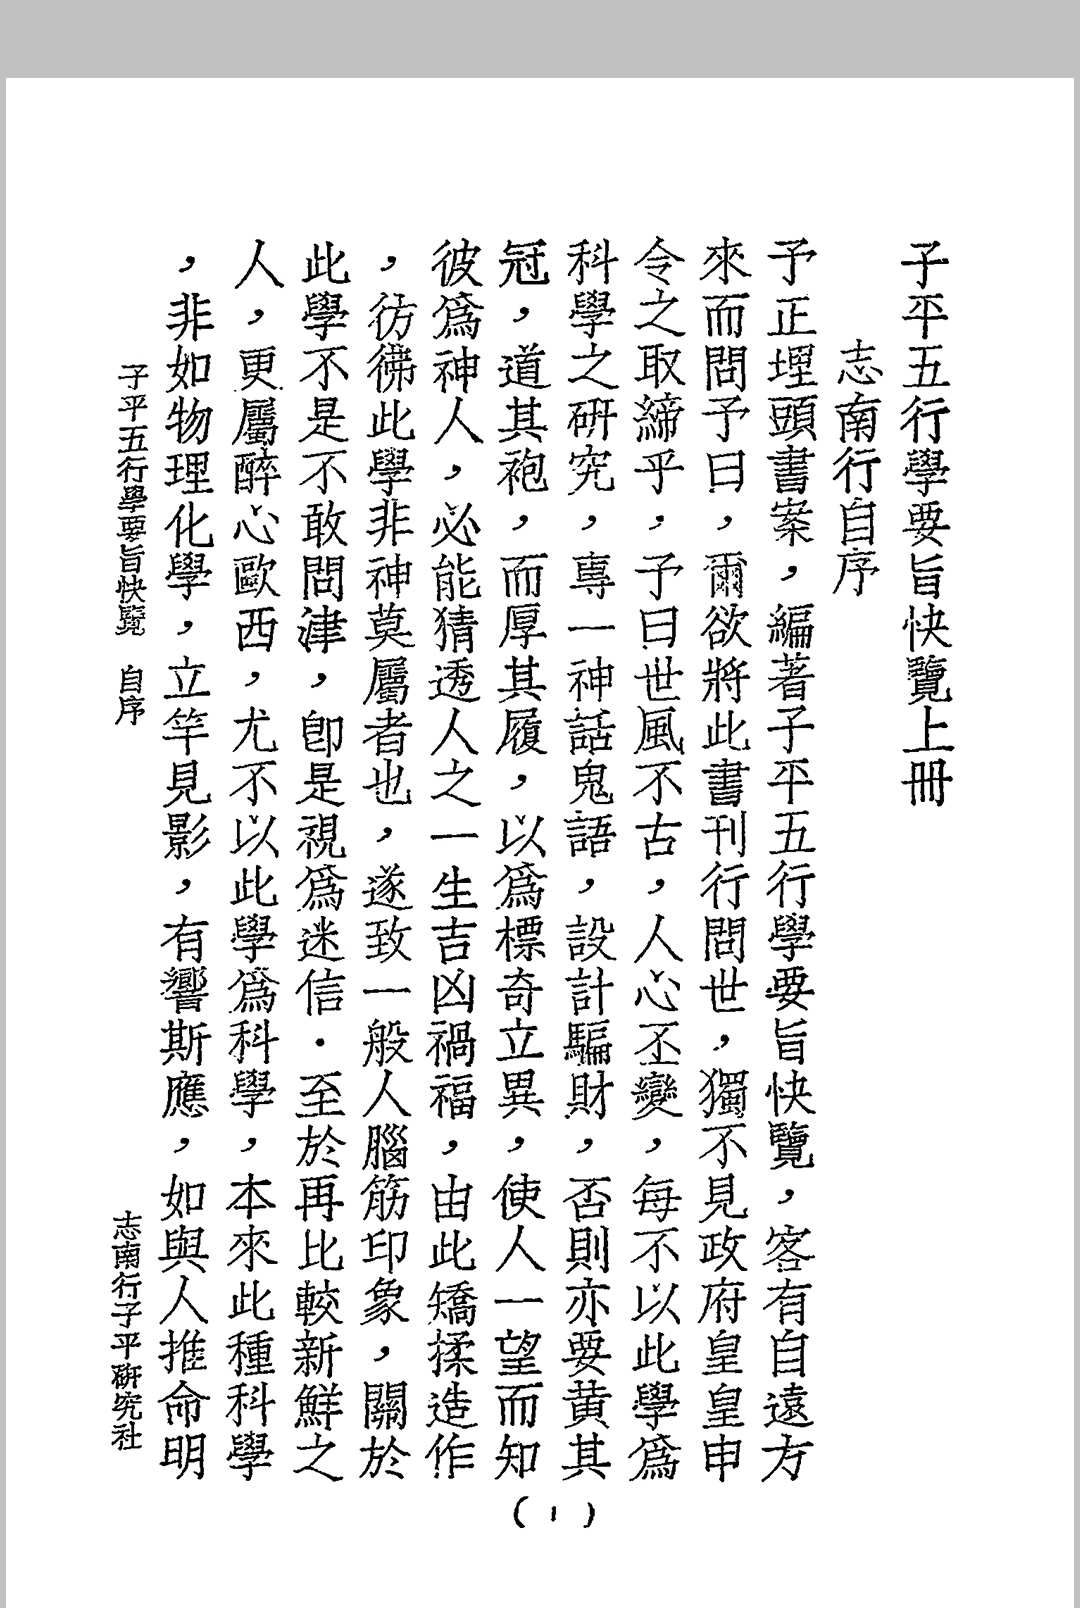 子平五行學要旨快覽上冊
志南行自序
予正埋頭書案，編著子平五行學要旨快覽，客有自遠方
來而問予曰，爾欲將此書刊行問世，獨不見政府皇皇申
令之取締乎，予曰世風不古，人心丕變，每不以此學爲
科學之研究，專一神話鬼語，設計騙財，否則亦要黄其
冠，道其袍，而厚其履，以爲標奇立異，使人一望而知
彼爲神人，必能猜透人之一生吉凶禍福，由此矯揉造作
，彷彿此學非神莫屬者也，遂致一般人腦筋印象，關於
此學不是不敢問津，卽是視爲迷信．至於再比較新鮮之
人，更屬醉心歐西，尤不以此學爲科學，本來此種科學
，非如物理化學，立竿見影，有響斯應，如與人推命明
子平五行學要旨快覽 自序
志南行子平研究社
(1)